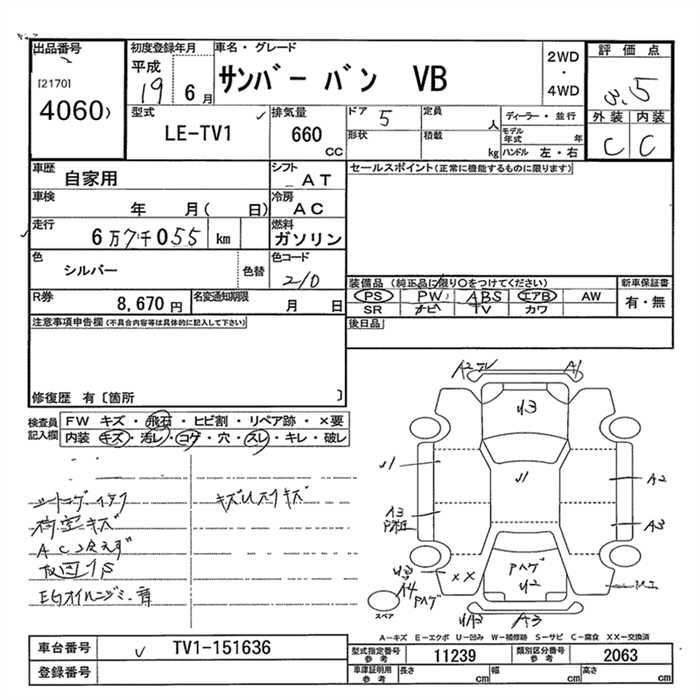 出品番号
[2170]
4060)
初度登録年月
平成
19 6月
車名・グレード
サンバー バン VB
2WD
・
4WD
評価点
3.5
外装 内装
C C
型式
LE-TV1
排気量
660
CC
ドア 5
定員 人
形状
積載 kg
ディーラー・並行
モデル年式 年
ハンドル 左・右
車歴
自家用
シフト
AT
車検
年 月( 日)
冷房
AC
走行
6万7千055 km
燃料
ガソリン
色
シルバー
色替
色コード
210
R券
8,670円
名変通知期限
月 日
セールスポイント(正常に機能するものに限ります)
装備品 (純正品に限り○をつけてください)
PS PW ABS エアB AW
SR ナビ TV カワ
新車保証書
有・無
後日品
注意事項申告欄(不具合内容等は具体的に記入して下さい)
修復歴 有〔箇所 〕
検査員記入欄
FW キズ・飛石・ヒビ割・リペア跡・×要
内装 キズ・汚レ・コゲ・穴・スレ・キレ・破レ
荷室キズ
AC冷えず
A2 A1
U3
U1
A2
A3
A3
A4
XX
Pハゲ
U2
Pハゲ
A3
スペア
A-キズ E-エクボ U-凹み W-補修跡 S-サビ C-腐食 XX-交換済
車台番号
TV1-151636
登録番号
型式指定番号 参考
11239
類別区分番号 参考
2063
車庫証明用 参考
長さ cm
幅 cm
高さ cm